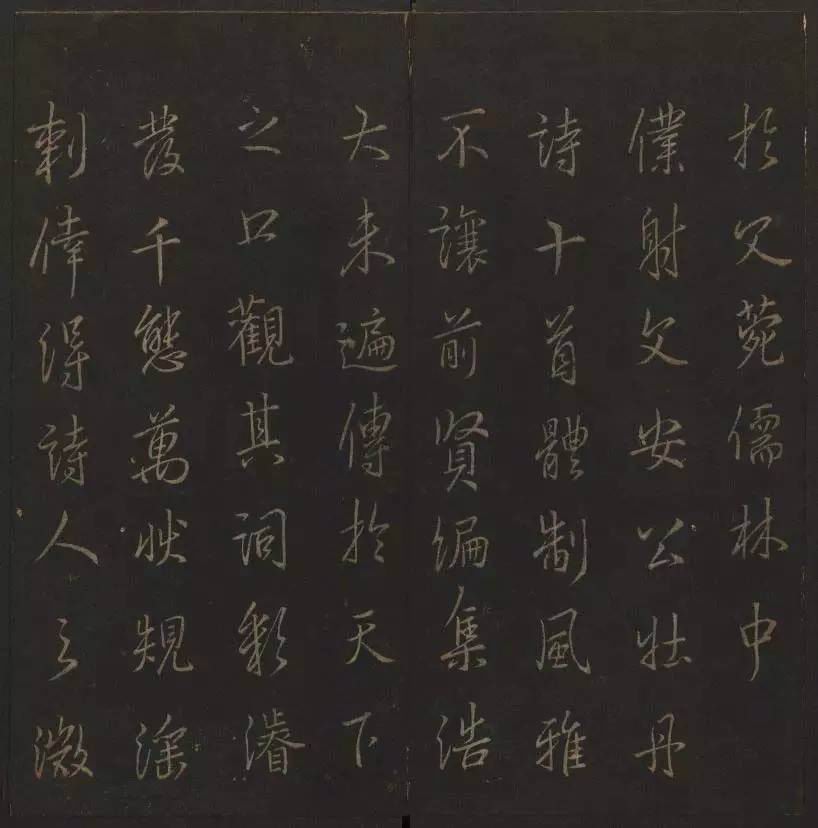 於文菀儒林中
僕射文安公牡丹
詩十首體制風雅
不讓前賢編集浩
大未遍傳於天下
之口觀其詞彩濬
發千態萬狀規滛
刺倖得詩人之微